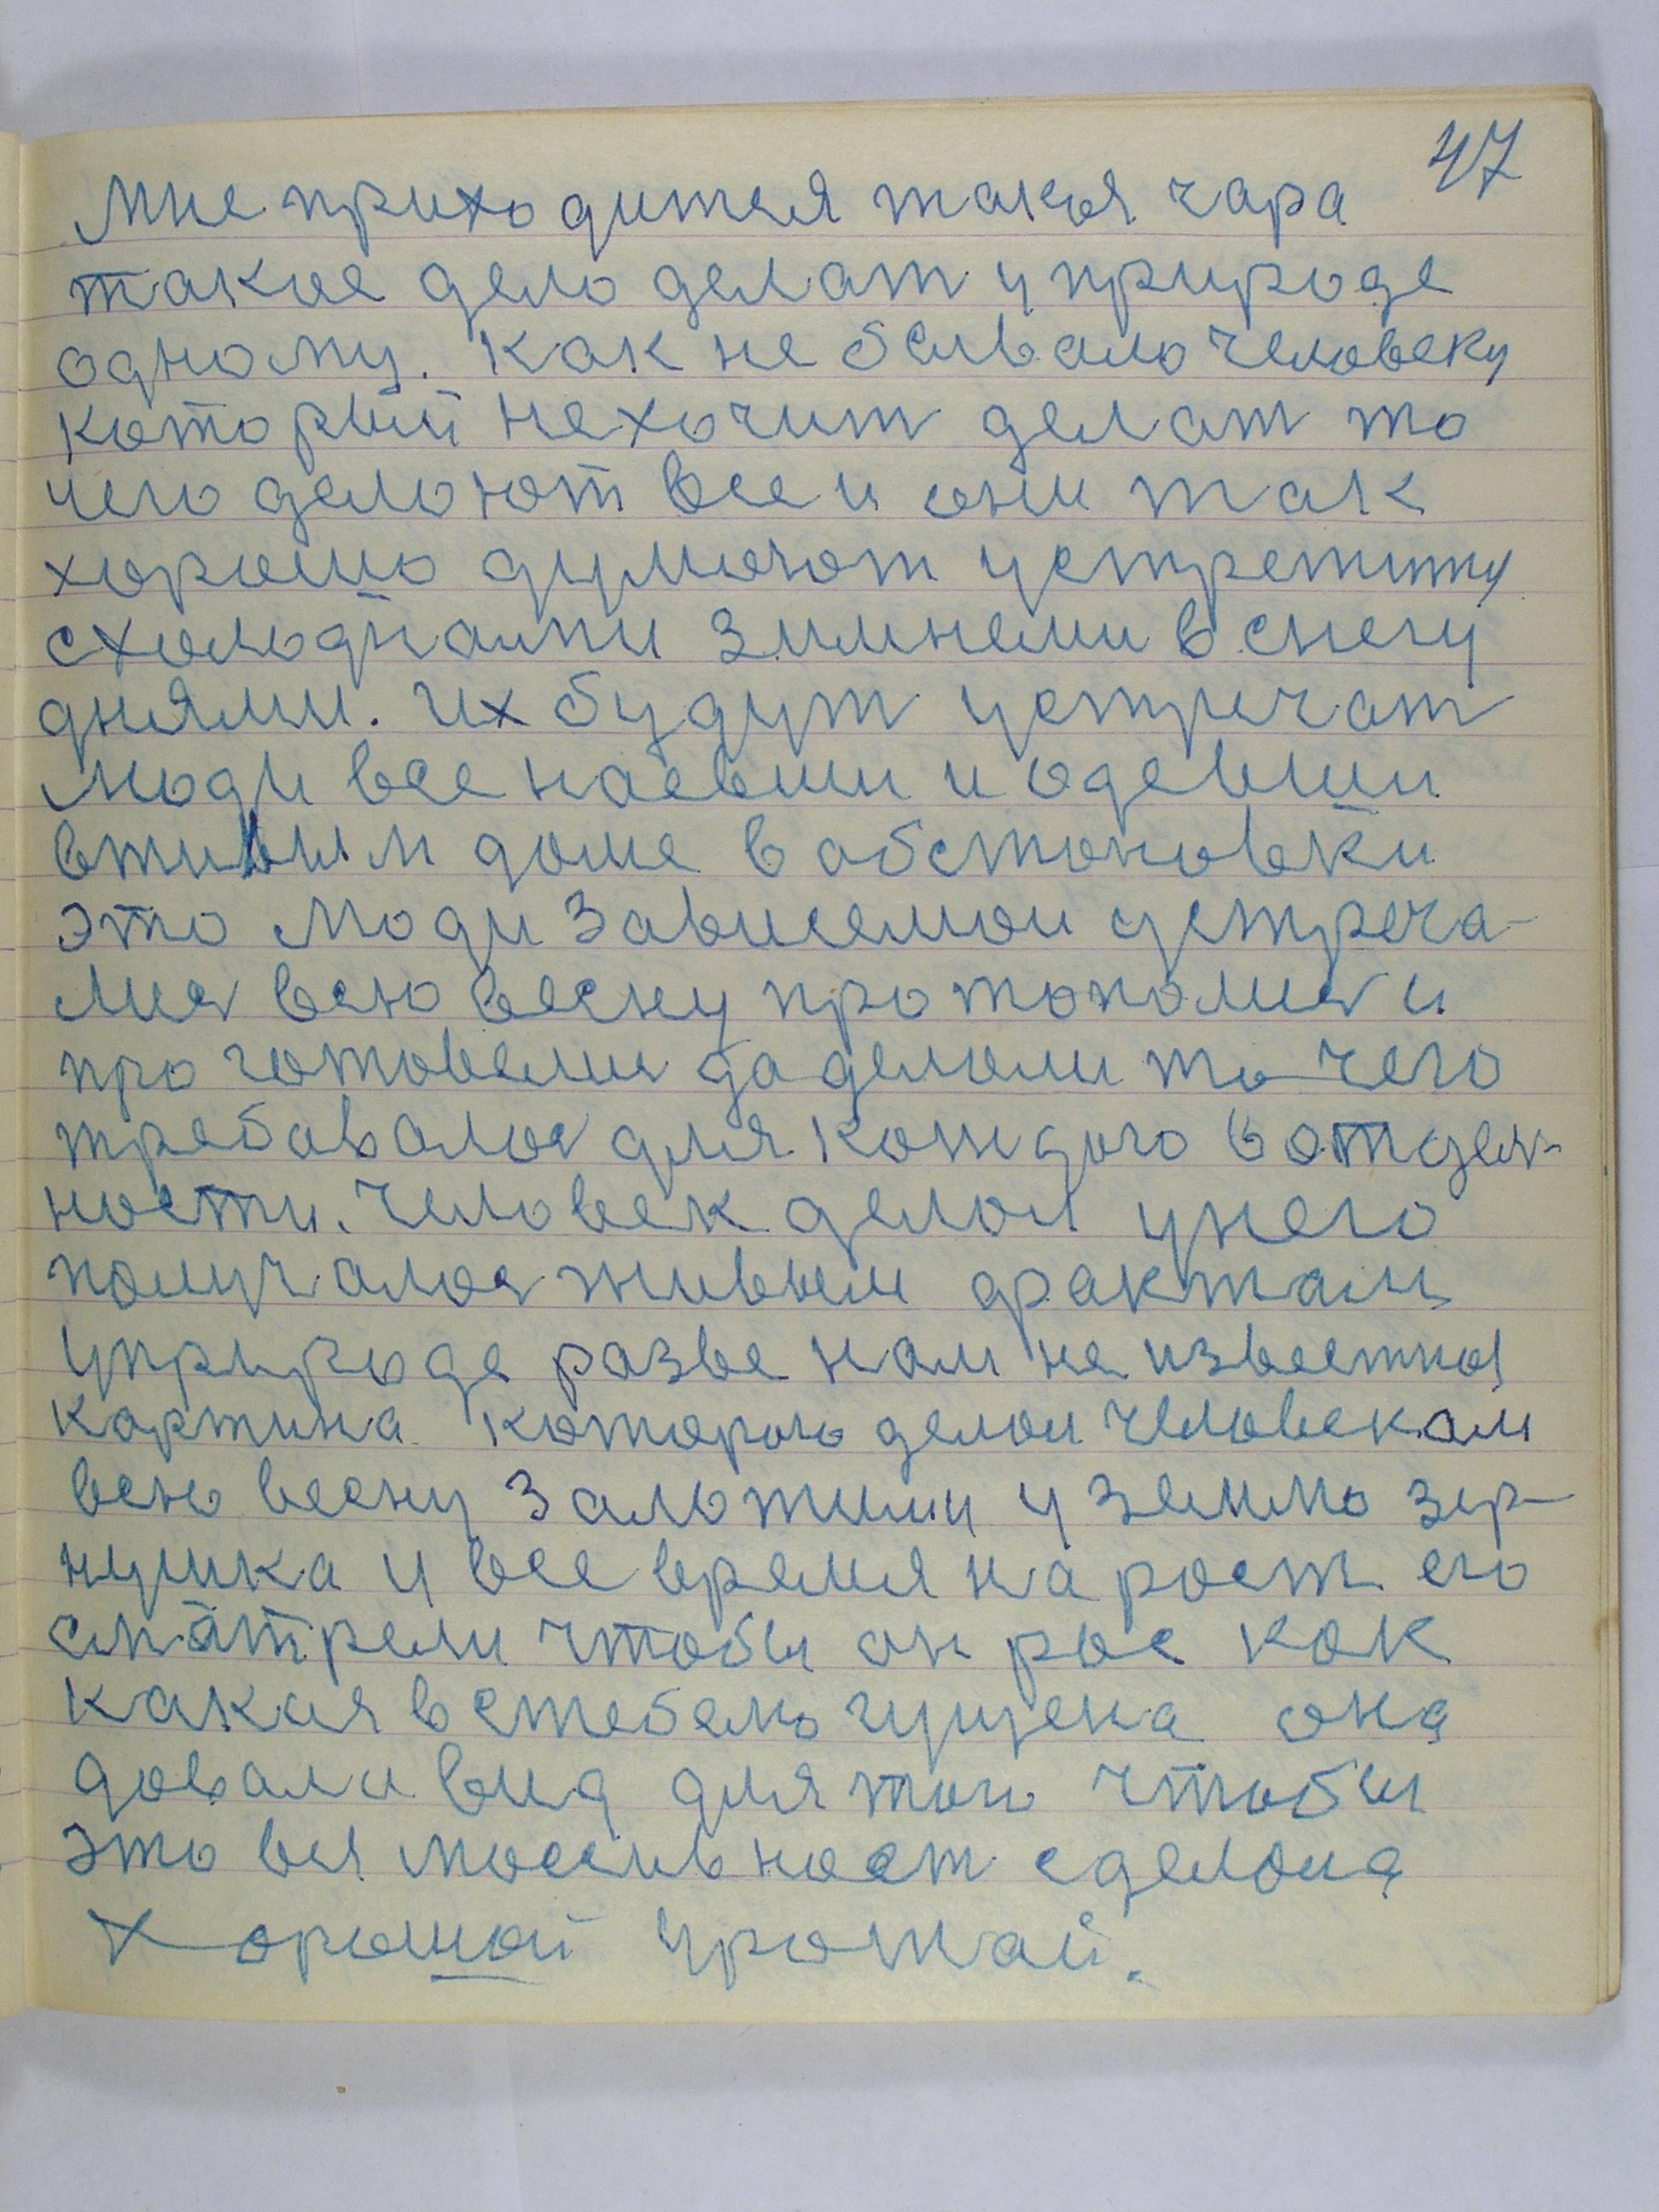 47
Мне приходится такая чара
такое дело делат у природе
одному. Как не бывало человеку
который нехочит делат то
чего делают все и они так
хорошо думают устретитц
схолодными зимнеми в снегу
днями. Их будут устречат
люди все наевши и одевши
в тиолым доме в обстоновки
это люди зависемои устреча-
лис всю весну протополис и
проготовелис да делоли то чего
требавалос для каждого в отдел-
ности. Человек делол унего
получалос живым фактам
уприроде разве нам не известно
картина которою делои человекам
всю весну заложили у землю зер-
нушка и все время на рост его
сматрели чтобы он рос как
какая в стебель гущена она
довали вид для того чтобы
это вся массивност сделола
хорошой урожай.